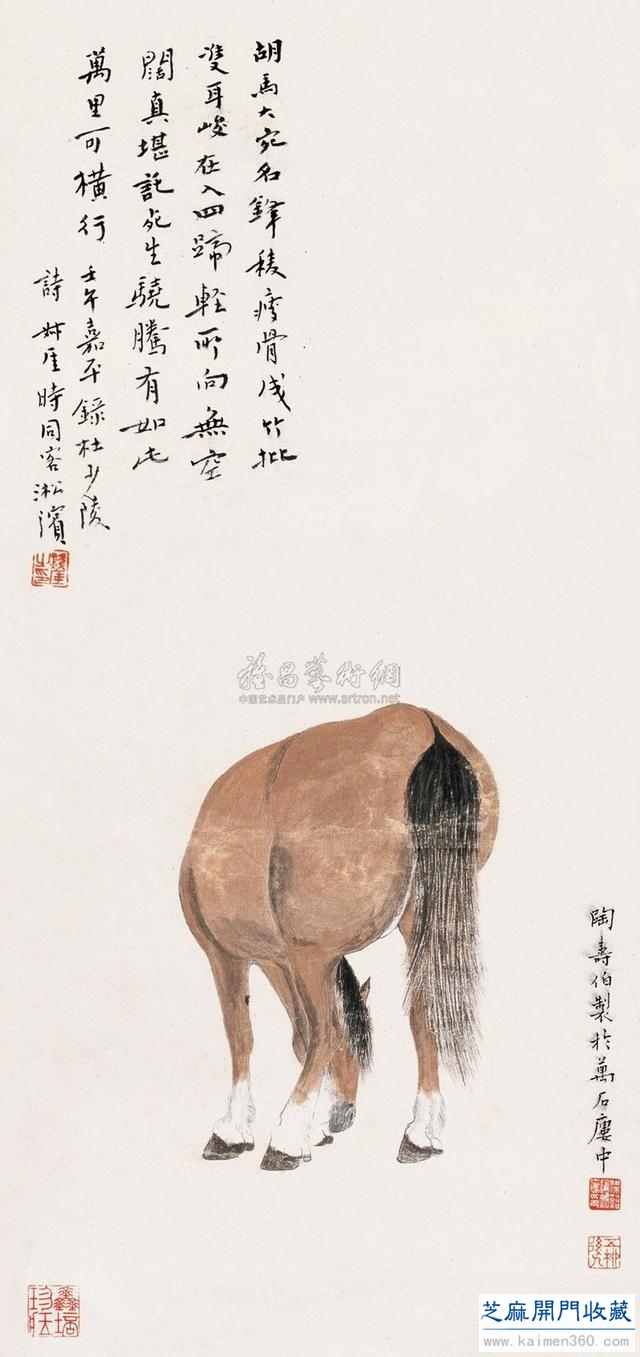 胡馬大宛名鋒稜瘦骨成竹批
雙耳峻在入四蹄輕所向無空
闊真堪託死生驍騰有如此
萬里可橫行 壬午嘉平錄杜少陵
詩 叔厓時同客淞濱
雅昌藝術網
中国艺术品门户 www.artron.net
陶壽伯製於萬石廔中
芝麻開門收藏
www.kaimen360.com